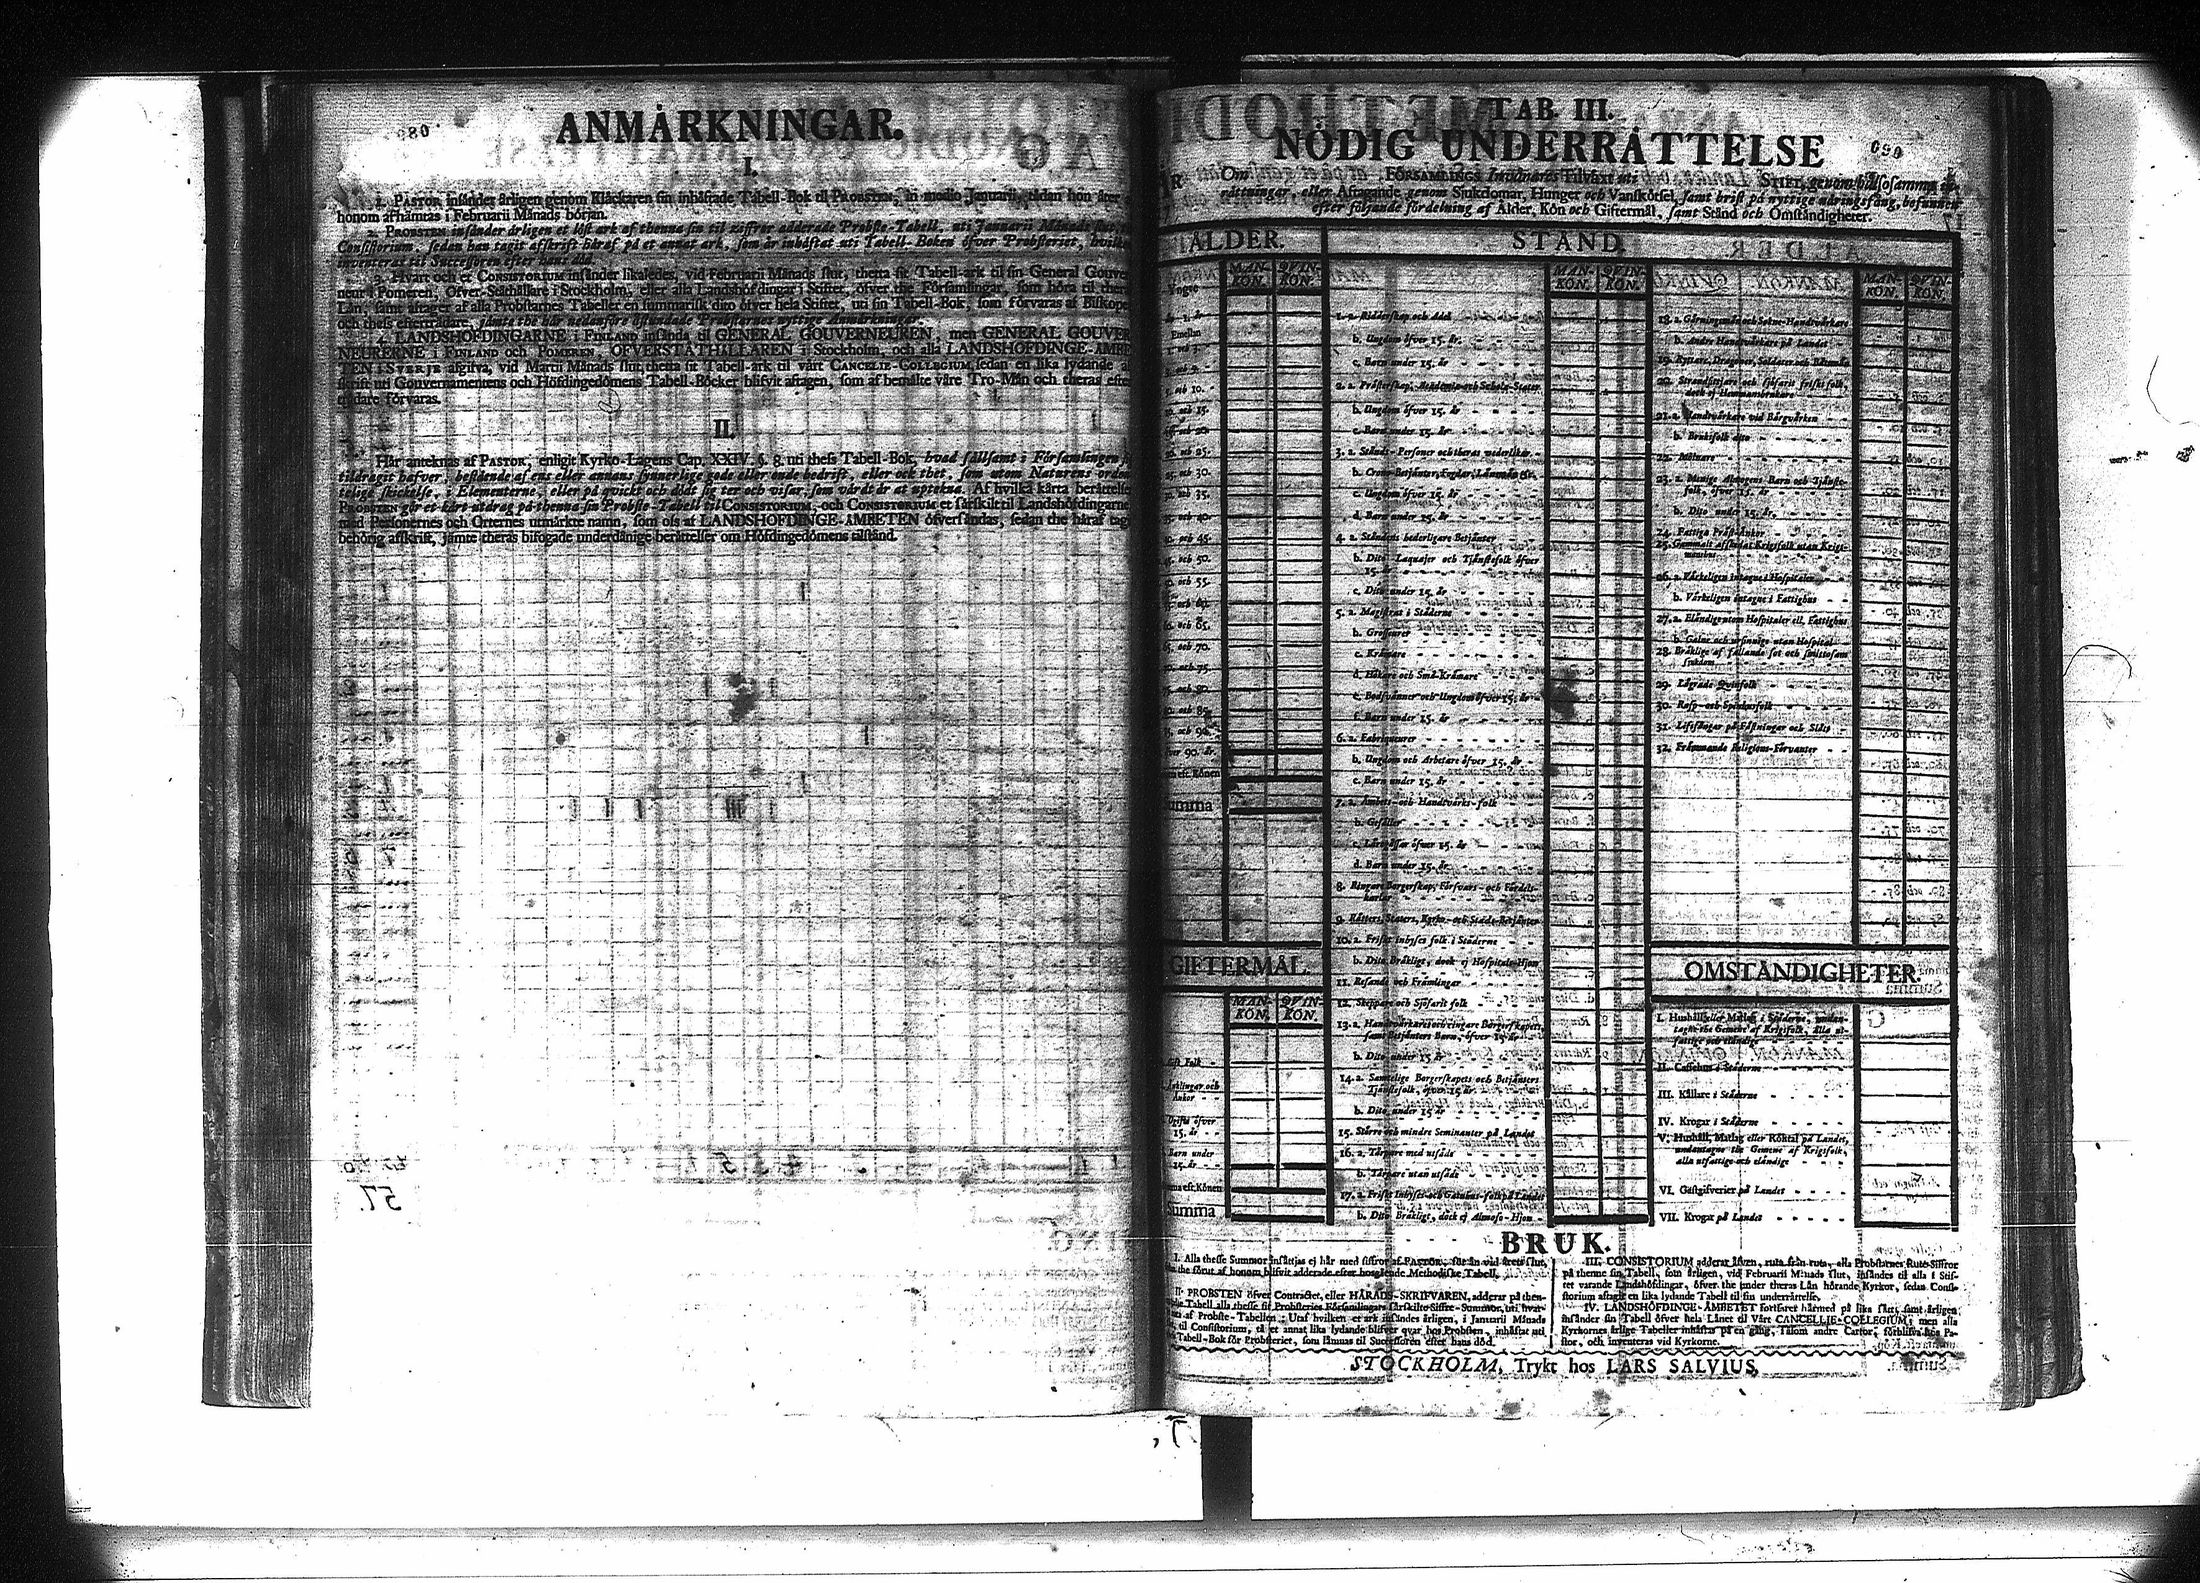 080
ANMÄRKNINGAR.
I.
1. PASTOR insänder årligen genom Klåckaren sin inhäftade Tabell-Bok til PROBSTEN, in medio Januarii, sedan hon åter
honom afhämtas i Februarii Månads början.
2. PROBSTEN insänder årligen et löst ark af thenna sin til ziffror adderade Probste-Tabell, uti Januarii Månads slut,
Consistorium, sedan han tagit afskrift häraf på et annat ark, som är inhäftat uti Tabell-Boken öfver Probsteriet, hvilken
inventeras til Successoren efter hans död.
3. Hvart och et CONSISTORIUM insänder likaledes, vid Februarii Månads slut, thetta sit Tabell-ark til sin General Gouver
neur i Pomeren, Öfver-Ståthållare i Stockholm, eller alla Landshöfdingar i Stiftet, öfver the Församlingar, som höra til thera
Län, samt aftager af alla Probstarnes Tabeller en summarisk dito öfver hela Stiftet, uti sin Tabell-Bok, som förvaras af Biskopen
och thess efterträdare, jämte the här nedanföre åstundade Probstarnas nyttige Anmärkningar.
4. LANDSHÖFDINGARNE i FINLAND insända til GENERAL GOUVERNEUREN, men GENERAL GOUVER
NEURERNE i FINLAND och POMEREN, ÖFVERSTÅTHÅLLAREN i Stockholm, och alla LANDSHÖFDINGE-ÄMBE
TEN I SVERJE afgifva, vid Martii Månads slut, thetta sit Tabell-ark til vårt CANCELIE-COLLEGIUM, sedan en lika lydande af
skrift uti Gouvernamentens och Höfdingedömens Tabell-Böcker blifvit aftagen, som af bemälte våre Tro-Män och theras efter
trädare förvaras.
II.
Här anteknas af PASTOR, enligit Kyrko-Lagens Cap. XXIV. §. 8. uti thess Tabell-Bok, hvad sällsamt i Församlingen
tildragit hafver, bestående af ens eller annans synnerlige gode eller onde bedrift, eller ock thet, som utom Naturens orden
telige skickelse, i Elementerne, eller på qvickt och dödt sig ter och visar, som värdt är at uptekna. Af hvilka korta berättelser
PROBSTEN gör et kort utdrag på thenna sin Probste-Tabell til CONSISTORIUM, och CONSISTORIUM et särskilt til Landshöfdingarne
med Personernes och Orternes utmärkte namn, som oss af LANDSHÖFDINGE-ÄMBETEN öfversändas, sedan the häraf tagit
behörig afskrift, jämte theras bifogade underdånige berättelser om Höfdingedömens tilstånd.
TAB. III.
NÖDIG UNDERRÄTTELSE
090
Om FÖRSAMLINGS Invånares Tilväxt uti STIFT, genom hälsosamma in-
rättningar, eller Aftagande genom Sjukdomar, Hunger och Vanskötsel, samt brist på nyttige näringsfång, befunnen
efter följande fördelning af Ålder, Kön och Giftermål, samt Stånd och Omständigheter.
ÅLDER.
MAN-KÖN. QVIN-KÖN.
Yngre
Emellan
och 10.
och 15.
och 20.
och 25.
och 30.
och 35.
och 40.
och 45.
och 50.
och 55.
och 60.
och 65.
och 70.
och 75.
och 80.
och 85.
och 90.
90. år
Summa
GIFTERMÅL.
MAN-KÖN. QVIN-KÖN.
Gift Folk
Änklingar och
Änkor
Ogifte öfver
15. år
Barn under
15. år
Summa
STÅND.
MAN-KÖN. QVIN-KÖN.
1. a. Ridderskap och Adel
b. Ungdom öfver 15. år
c. Barn under 15. år
2. a. Prästerskap, Academie och Schole-Stater
b. Ungdom öfver 15. år
c. Barn under 15. år
3. a. Stånds-Personer och theras vederlikar
b. Cron-Betjänter, Fogdar, Länsmän etc.
c. Ungdom öfver 15. år
d. Barn under 15. år
4. a. Ståndens hederligare Betjänter
b. Dito Laquajer och Tjänstefolk öfver
15. år
c. Dito under 15. år
5. a. Magistrat i Städerne
b. Grosseurer
c. Krämare
d. Hökare och Små-Krämare
e. Bodsvänner och Ungdom öfver 15. år
f. Barn under 15. år
6. a. Fabriqueurer
b. Ungdom och Arbetare öfver 15. år
c. Barn under 15. år
7. a. Ämbets- och Handtvärks-folk
b. Gesäller
c. Lärogossar öfver 15. år
d. Barn under 15. år
8. Ringare Borgerskap, Försvars- och Fördels-
karlar
9. Rätters, Staters, Kyrko- och Stads-Betjänter
10. a. Friskt inhyses folk i Städerne
b. Dito Bräkligt, dock ej Hospitals-Hjon
11. Resande och Främlingar
12. Skeppare och Sjöfarit folk
13. a. Handtvärkares och ringare Borgerskapets,
samt Betjänters Barn, öfver 15. år
b. Dito under 15 år
14. a. Samtelige Borgerskapets och Betjänters
Tjänstefolk, öfver 15 år
b. Dito under 15 år
15. Större och mindre Seminanter på Landet
16. a. Torpare med utsäde
b. Torpare utan utsäde
17. a. Friskt Inhyses- och Gatuhus-folk på Landet
b. Dito Bräkligt, dock ej Almose-Hjon
MAN-KÖN. QVIN-KÖN.
18. a. Gärningsmän och Sokne-Handtvärkare
b. Andre Handtvärkare på Landet
19. Ryttare, Dragoner, Soldater och Båtsmän
20. Strandsittjare och sjöfarit friskt folk,
dock ej Hemmansbrukare
21. a. Handtvärkare vid Bärgvärken
b. Bruksfolk dito
22. Mölnare
23. a. Menige Almogens Barn och Tjänste-
folk, öfver 15. år
b. Dito under 15. år
24. Fattiga Präst-Änkor
25. Gammalt afskedat Krigsfolk utan Krigs-
26. a. Värkeligen intagne i Hospitaler
b. Värkeligen intagne i Fattighus
27. a. Eländige utom Hospitaler ell. Fattighus
b. Galne och ursinnige utan Hospital
28. Bräklige af fallande sot och smittosam
sjukdom
29. Lägrade Qvinfolk
30. Rasp- och Spinhusfolk
31. Lifsfångar på Fästningar och Slått
32. Främmande Religions-Förvanter
OMSTÄNDIGHETER
I. Hushåll eller Matlag i Städerne, undan-
tagne the Gemene af Krigsfolk, alla ut-
fattige och eländige
II. Caffehus i Städerne
III. Källare i Städerne
IV. Krogar i Städerne
V. Hushåll, Matlag eller Röktal på Landet,
undantagne the Gemene af Krigsfolk,
alla utfattige och eländige
VI. Gästgifverier på Landet
VII. Krogar på Landet
BRUK.
I. Alla thesse Summor insättjas ej här med siffror af PASTOR, förr än vid årets slut,
the förut af honom blifvit adderade efter hosgående Methodiske Tabell.
II. PROBSTEN öfver Contractet, eller HÄRADS-SKRIFVAREN, adderar på then-
Tabell alla thesse sit Probsteries Församlingars särskilte Siffre-Summor, uti hvar-
af Probste-Tabellen: Utaf hvilken et ark insändes årligen, i Januarii Månads
til Consistorium, tå et annat lika lydande blifver qvar hos Probsten, inhäftat uti
Tabell-Bok för Probsteriet, som lämnas til Successoren efter hans död.
III. CONSISTORIUM adderar äfven, ruta från ruta, alla Probstarnes Rute-Siffror
på thenne sin Tabell, som årligen, vid Februarii Månads slut, insändes til alla i Stif-
tet varande Landshöfdingar, öfver the under theras Län hörande Kyrkor, sedan Consi-
storium aftagit en lika lydande Tabell til sin underrättelse.
IV. LANDSHÖFDINGE-ÄMBETET fortfarer härmed på lika sätt, samt årligen
insänder sin Tabell öfver hela Länet til Vårt CANCELLIE-COLLEGIUM; men alla
Kyrkornes årlige Tabeller inhäftas på en gång, såsom andre Cartor, förblifva hos Pa-
stor, och inventeras vid Kyrkorne.
STOCKHOLM, Trykt hos LARS SALVIUS,